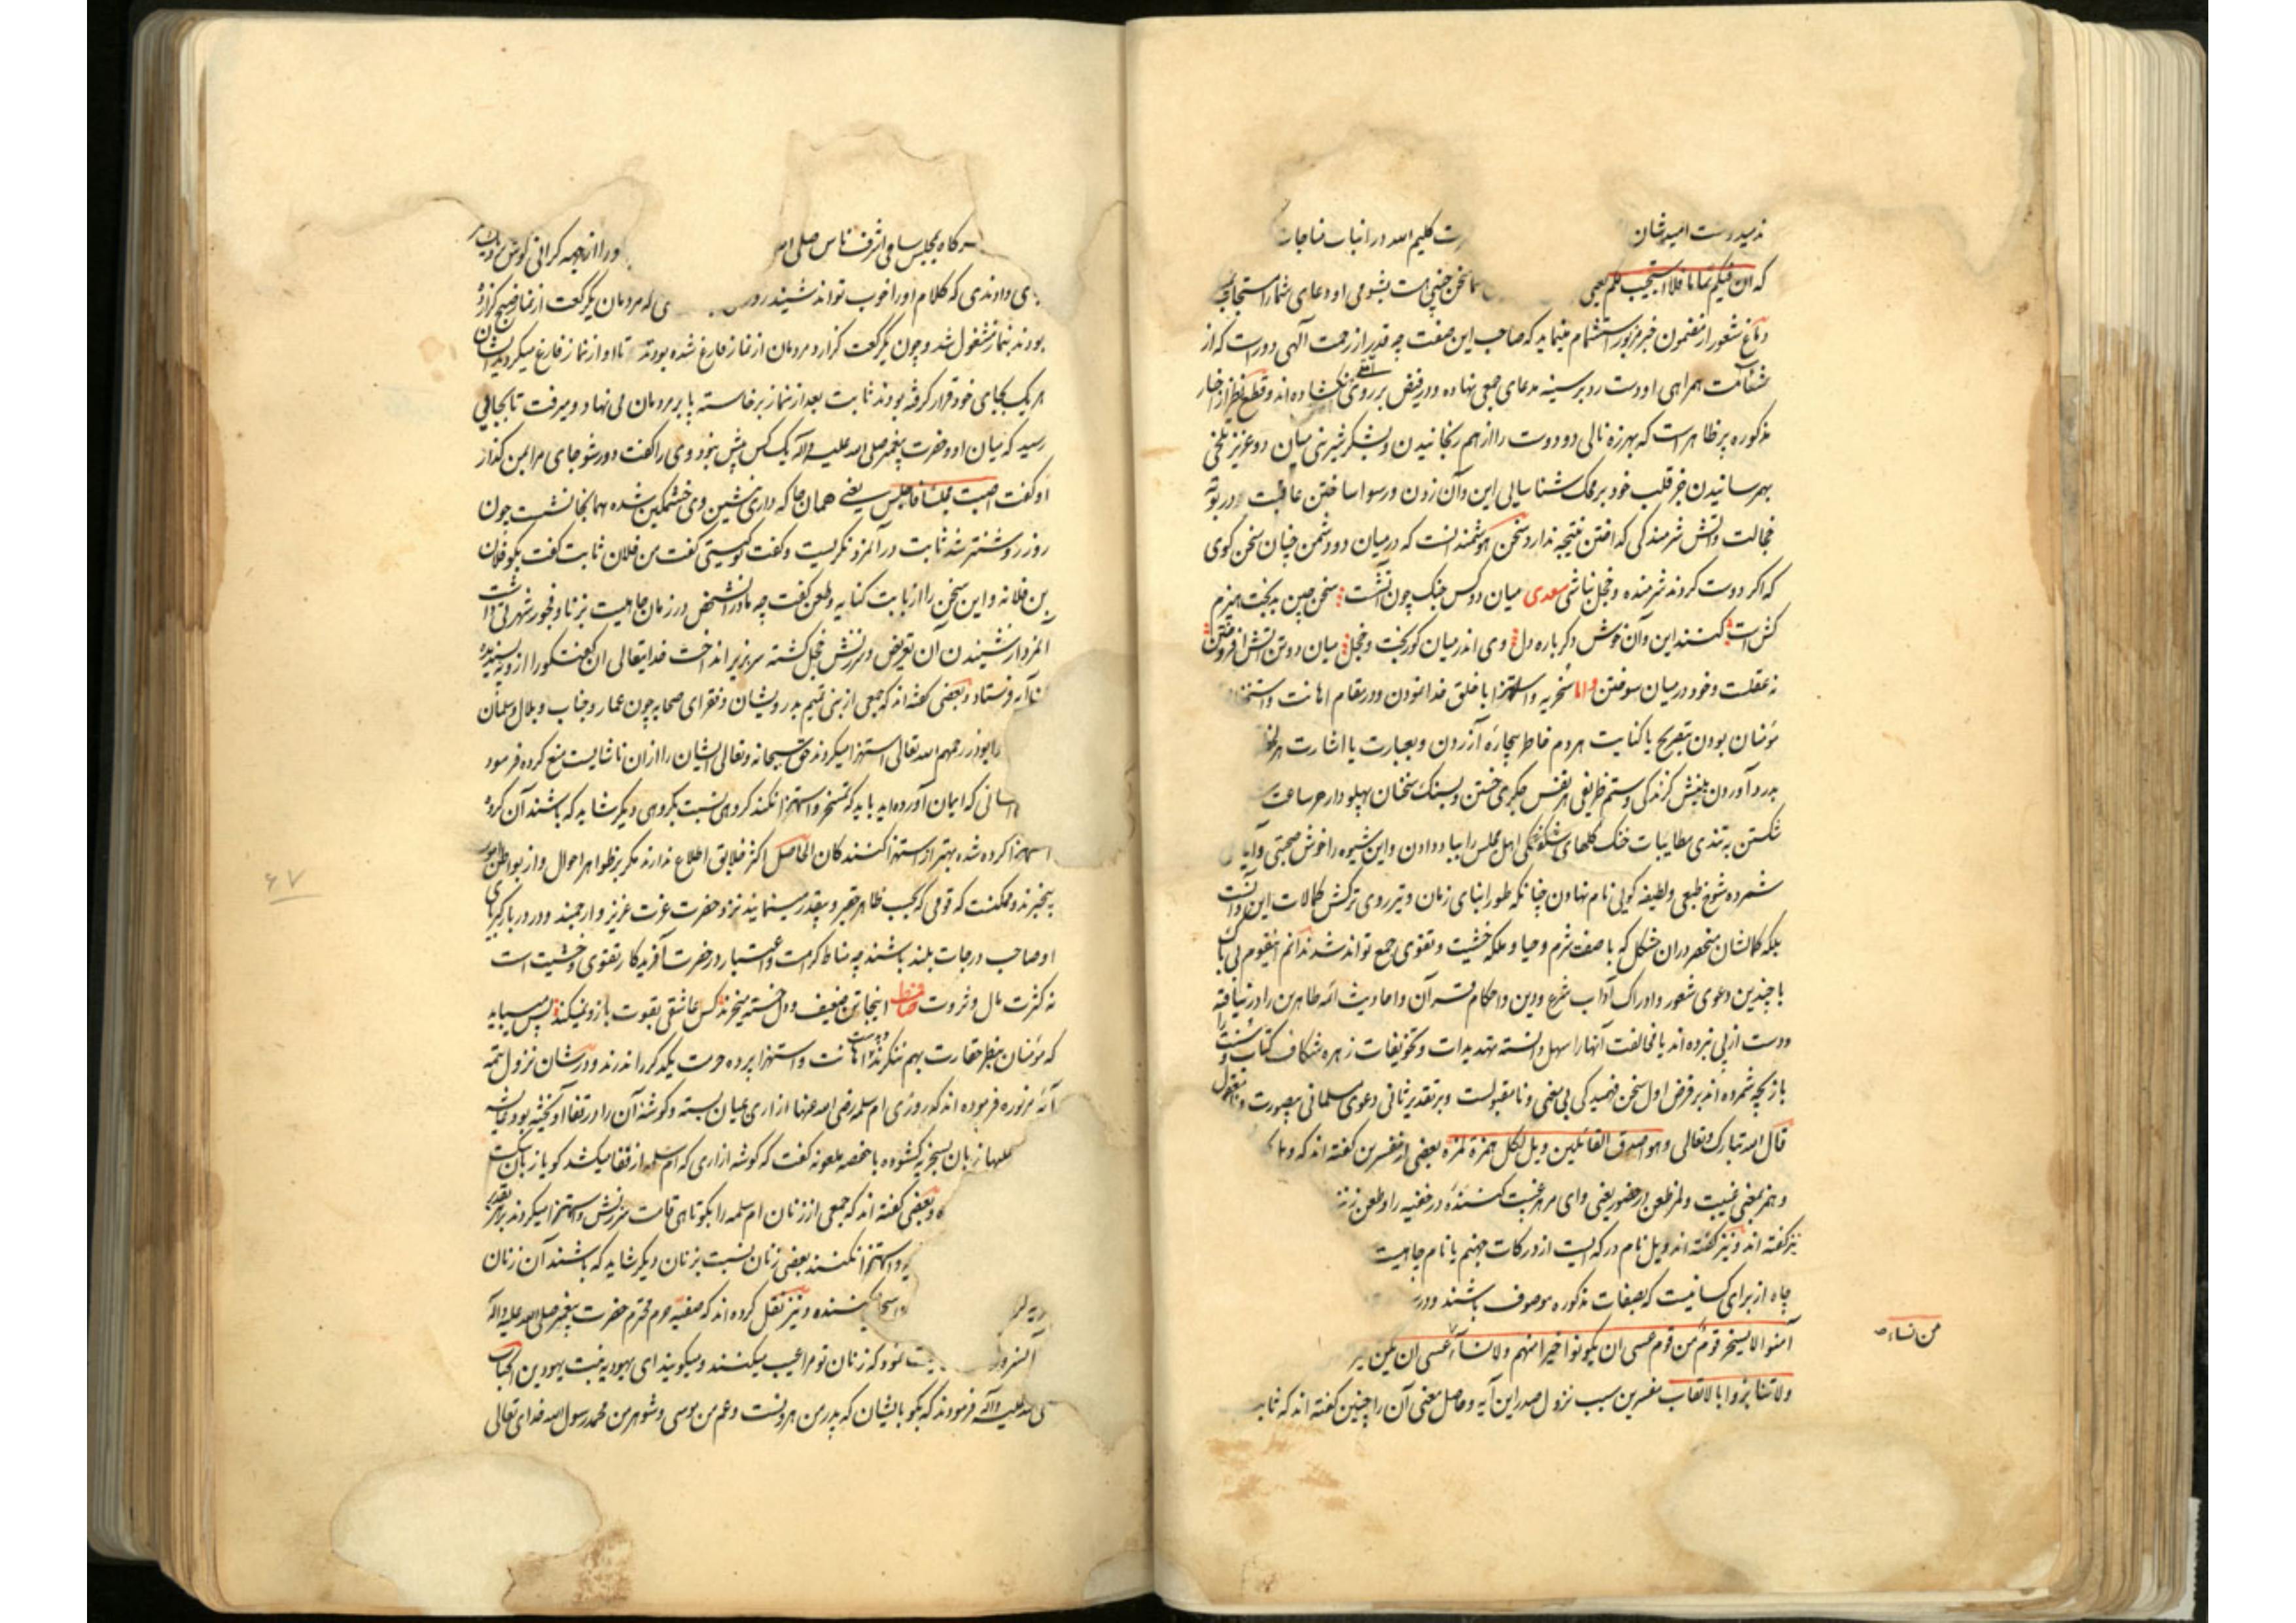 رت کلیم الله در اثبات مناجات
که ان فیکم نماما فلا استجیب لکم یعنی
دماغ شعور از مضمون خبر مزبور استشمام مینماید که صاحب این صفت چه قدر از رحمت الهی دور است که از
شئامت همراهی او دست رد بر سینه مدعای جمعی نهاده و در فیض بر روی نکشاده‌اند و قطع نظر از اخبار
مذکوره پر ظاهر است که بهرزه نالی دو دوست را از هم رنجانیدن و بشکر شیرینی میان دو عزیز تلخی
بهم رسانیدن جز قلب خود بر محک شناسایی این و آن زدن و رسوا ساختن عاقبت و در بوته
خجالت و آتش شرمندگی گداختن نتیجه ندارد سخن هوشمند آنست که در میان دو دشمن چنان سخن کوی
که اگر دوست کردند شرمنده و خجل نباشی سعدی میان دو کس جنگ چون آتشست سخن چین بدبخت هیزم
کش است کنند این و آن خوش دگرباره دل وی اندر میان کوربخت و خجل میان دو تن آتش افروختن
نه عقلست و خود در میان سوختن و اما سخریه و استهزا با خلق خدا نمودن و در مقام اهانت و استخفاف
مؤمنان بودن بتصریح یا کنایت هر دم خاطر بیچاره آزردن و بعبارت یا اشارت هر لحظه
بدرد آوردن بنیش گزندگی و ستم ظریفی هر نفس جگری خستن و بسنگ سخنان پهلودار هر ساعت
شکستن به تندی مطایبات خنک گلهای شگفتگی اهل مجلس را بباد دادن و این شیوه را خوش صحبتی و
شمرده شوخ طبعی و لطیفه کویی نام نهادن چنانکه طور ابنای زمان و تیر روی ترکش کمالات این و آنست
بلکه کمالشان منحصر در آن مشکل که با صفت شرم و حیا و ملکه خشیت و تقوی جمع تواند شد ندانم این قوم بی باک
با چندین دعوی شعور و ادراک آداب شرع و دین و احکام قرآن و احادیث ائمه طاهرین را در نیافته
و دست از پی نبرده‌اند یا مخالفت آنها را سهل دانسته تهدیدات و تخویفات زهره شکاف کتاب و سنت را
بازیچه شمرده‌اند بر فرض اول سخن فهمیدگی بی معنی و نامقبولست و بر تقدیر ثانی دعوی مسلمانی بیصورت و نامعقول
قال الله تبارک و تعالی و هو اصدق القائلین ویل لکل همزة لمزة بعضی از مفسرین گفته‌اند که
و همز بمعنی غیبت و لمز طعن در حضور یعنی وای مر هر غیبت کننده در غیبه را و طعن زننده
نیز گفته‌اند و نیز گفته‌اند ویل نام درکه ایست از درکات جهنم یا نام چاهیست
چاه از برای کسانیست که بصفات مذکوره موصوف باشند و در
آمنوا لا یسخر قوم من قوم عسی ان یکونوا خیرا منهم ولا نساء عسی ان یکن خیر
من نساء
ولا تنابزوا بالالقاب مفسرین سبب نزول صدر این آیه و حاصل معنی آن را چنین گفته‌اند که ثابت
هر کاه بمجلس سامی اشرف ناس صلی الله ورا از جهه کرانی کوش
ی دادندی که کلام او را خوب تواند شنید روز ی که مردمان یک رکعت از نماز صبح گزارده
بودند بنماز مشغول شد و چون یک رکعت گزارد مردمان از نماز فارغ شده بودند تا او از نماز فارغ میگردید ایشان
هر یک بجای خود قرار گرفته بودند ثابت بعد از نماز برخاسته پا بر مردمان می نهاد و میرفت تا بجایی
رسید که میان او و حضرت پیغمبر صلی الله علیه و آله یک کس بیش نبود وی را گفت دور شو جای مرا بمن گذار
او گفت اصبت مجلسا فاجلس یعنی همان جا که داری بنشین وی خشمگین شده همانجا نشست چون
روز روشنتر شد ثابت در آن مرد نگریست و گفت تو کیستی گفت من فلان ثابت گفت بگو فلان
بن فلانه و این سخن را از بابت کنایه و طعن گفت چه مادر آن شخص در زمان جاهلیت بزنا و فجور شهرتی داشت
آنمرد از شنیدن آن تعریض و سرزنش خجل گشته سر بزیر انداخت خدایتعالی آن گفتگو را از وی نپسندیده
آیه فرستاد و بعضی گفته‌اند که جمعی از بنی تمیم بدرویشان و فقرای صحابه چون عمار و خباب و بلال و سلمان
و ابوذر رحمهم الله تعالی استهزا میکردند حق سبحانه و تعالی ایشان را از آن ناشایست منع کرده فرمود
کسانی که ایمان آورده‌اید باید که تمسخر و استهزا نکنند گروهی نسبت بگروهی دیگر شاید که باشند آن گروه
استهزا کرده شده بهتر از استهزا کنندگان الحاصل اکثر خلایق اطلاع ندارند مگر بظواهر احوال و از بواطن امور
بیخبرند و ممکنست که قومی که بحسب ظاهر حقیر و بیقدر مینمایند نزد حضرت عزت عزیز و ارجمند و در دربار کبریای
او صاحب درجات بلند باشند چه مناط کرامت و اعتبار در حضرت آفریدگار تقوی و خشیت است
نه کثرت مال و ثروت اینجا تن ضعیف و دل خسته میخرند کس عاشقی بقوت بازو نمیکند پس میباید
که مؤمنان بنظر حقارت بهم ننگرند و بدست اهانت و استهزا پرده حرمت یکدگر را ندرند و در شان نزول تتمه
آیه مزبوره فرموده‌اند که روزی ام سلمه رضی الله عنها ازاری بمیان بسته و کوشه آن را در قفا آویخته بود و عایشه
علیها زبان بسخریه کشوده با حفصه ملعونه گفت که گوشه ازاری که ام سلمه از قفا میکشد گویا زبان سگیست
و بعضی گفته‌اند که جمعی از زنان ام سلمه را بکوتاهی قامت سرزنش و استهزا میکردند بر هر تقدیر
و استهزا نکنند بعضی زنان نسبت بزنان دیگر شاید که باشند آن زنان
کننده و نیز نقل کرده‌اند که صفیه حرم محترم حضرت پیغمبر صلی الله علیه و آله
نمود که زنان تو مرا عیب میکنند و میگویند ای یهودیه بنت یهودین
صلی الله علیه و آله فرمودند که بگو بایشان که پدر من هرونست و عم من موسی و شوهر من محمد رسول الله خدای تعالی
۶۷